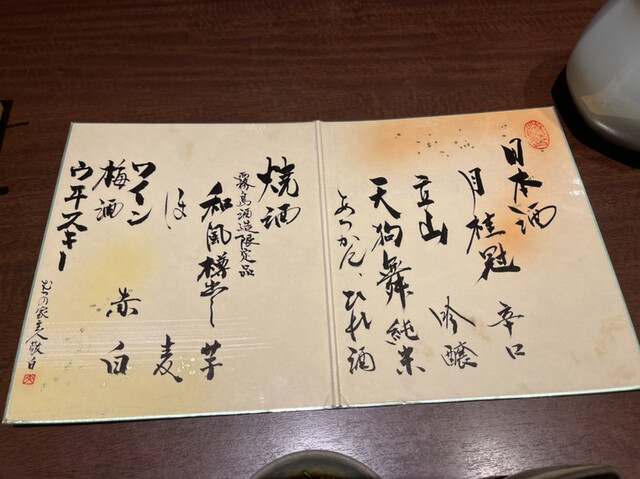 日本酒
月桂冠 辛口
立山 吟醸
天狗舞 純米
あつかん、ひれ酒
焼酒
霧島酒造限定品
和風樽出し 芋
麦
ワイン 赤 白
梅酒
ウヰスキー
敬白